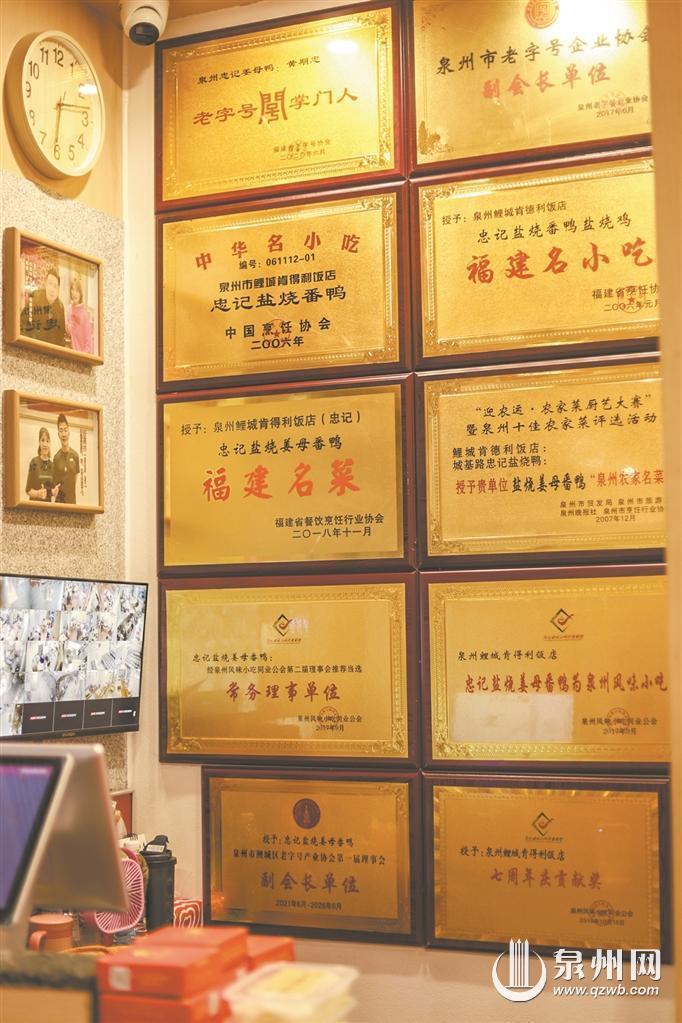 泉州忠记姜母鸭：黄期忠
老字号掌门人
福建老字号协会
泉州市老字号企业协会
副会长单位
泉州老字号企业协会
2017年6月
中华名小吃
编号：061112-01
泉州市鲤城肯得利饭店
忠记盐烧番鸭
中国烹饪协会
二〇〇六年
授予：泉州鲤城肯德利饭店
忠记盐烧番鸭盐烧鸡
福建名小吃
福建省烹饪协
二〇〇六年元月
授予：泉州鲤城肯得利饭店（忠记）
忠记盐烧姜母番鸭
福建名菜
福建省餐饮烹饪行业协会
二〇一八年十一月
“迎农运·农家菜厨艺大赛”
暨泉州十佳农家菜评选活动
鲤城肯德利饭店：
城基路忠记盐烧鸭：
授予贵单位 盐烧姜母番鸭 “泉州农家名菜
泉州市贸发局 泉州市旅游
泉州晚报社 泉州市烹饪行业协
2007年12月
忠记盐烧姜母鸭：
经泉州风味小吃同业公会第二届理事会推荐当选
常务理事单位
泉州风味小吃同业公会
泉州鲤城肯得利饭店
忠记盐烧姜母番鸭为泉州风味小吃
泉州风味小吃同业公会
授予：忠记盐烧姜母番鸭
泉州市鲤城区老字号产业协会第一届理事会
副会长单位
2021年6月-2026年6月
授予：泉州鲤城肯得利饭店
七周年庆贡献奖
泉州风味小吃同业公会
泉州网
www.qzwb.com